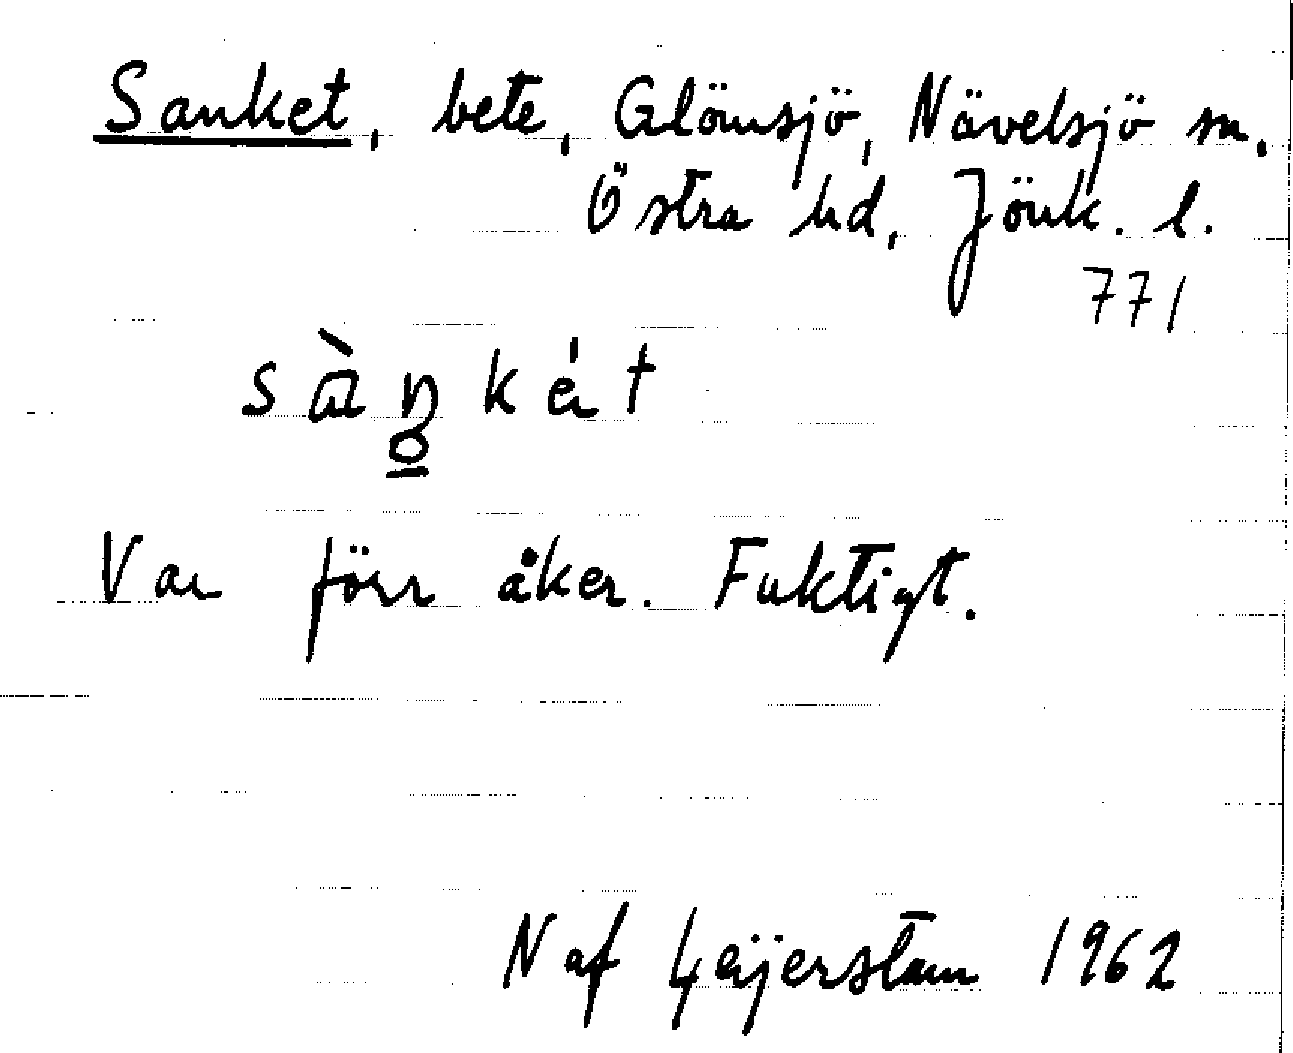 Sanket, bete, Glömsjö, Nävelsjö sn.
Östra hd, Jönk. l.
771
sàŋkét
Var förr åker. Fuktigt.
N af Geijerstam 1962